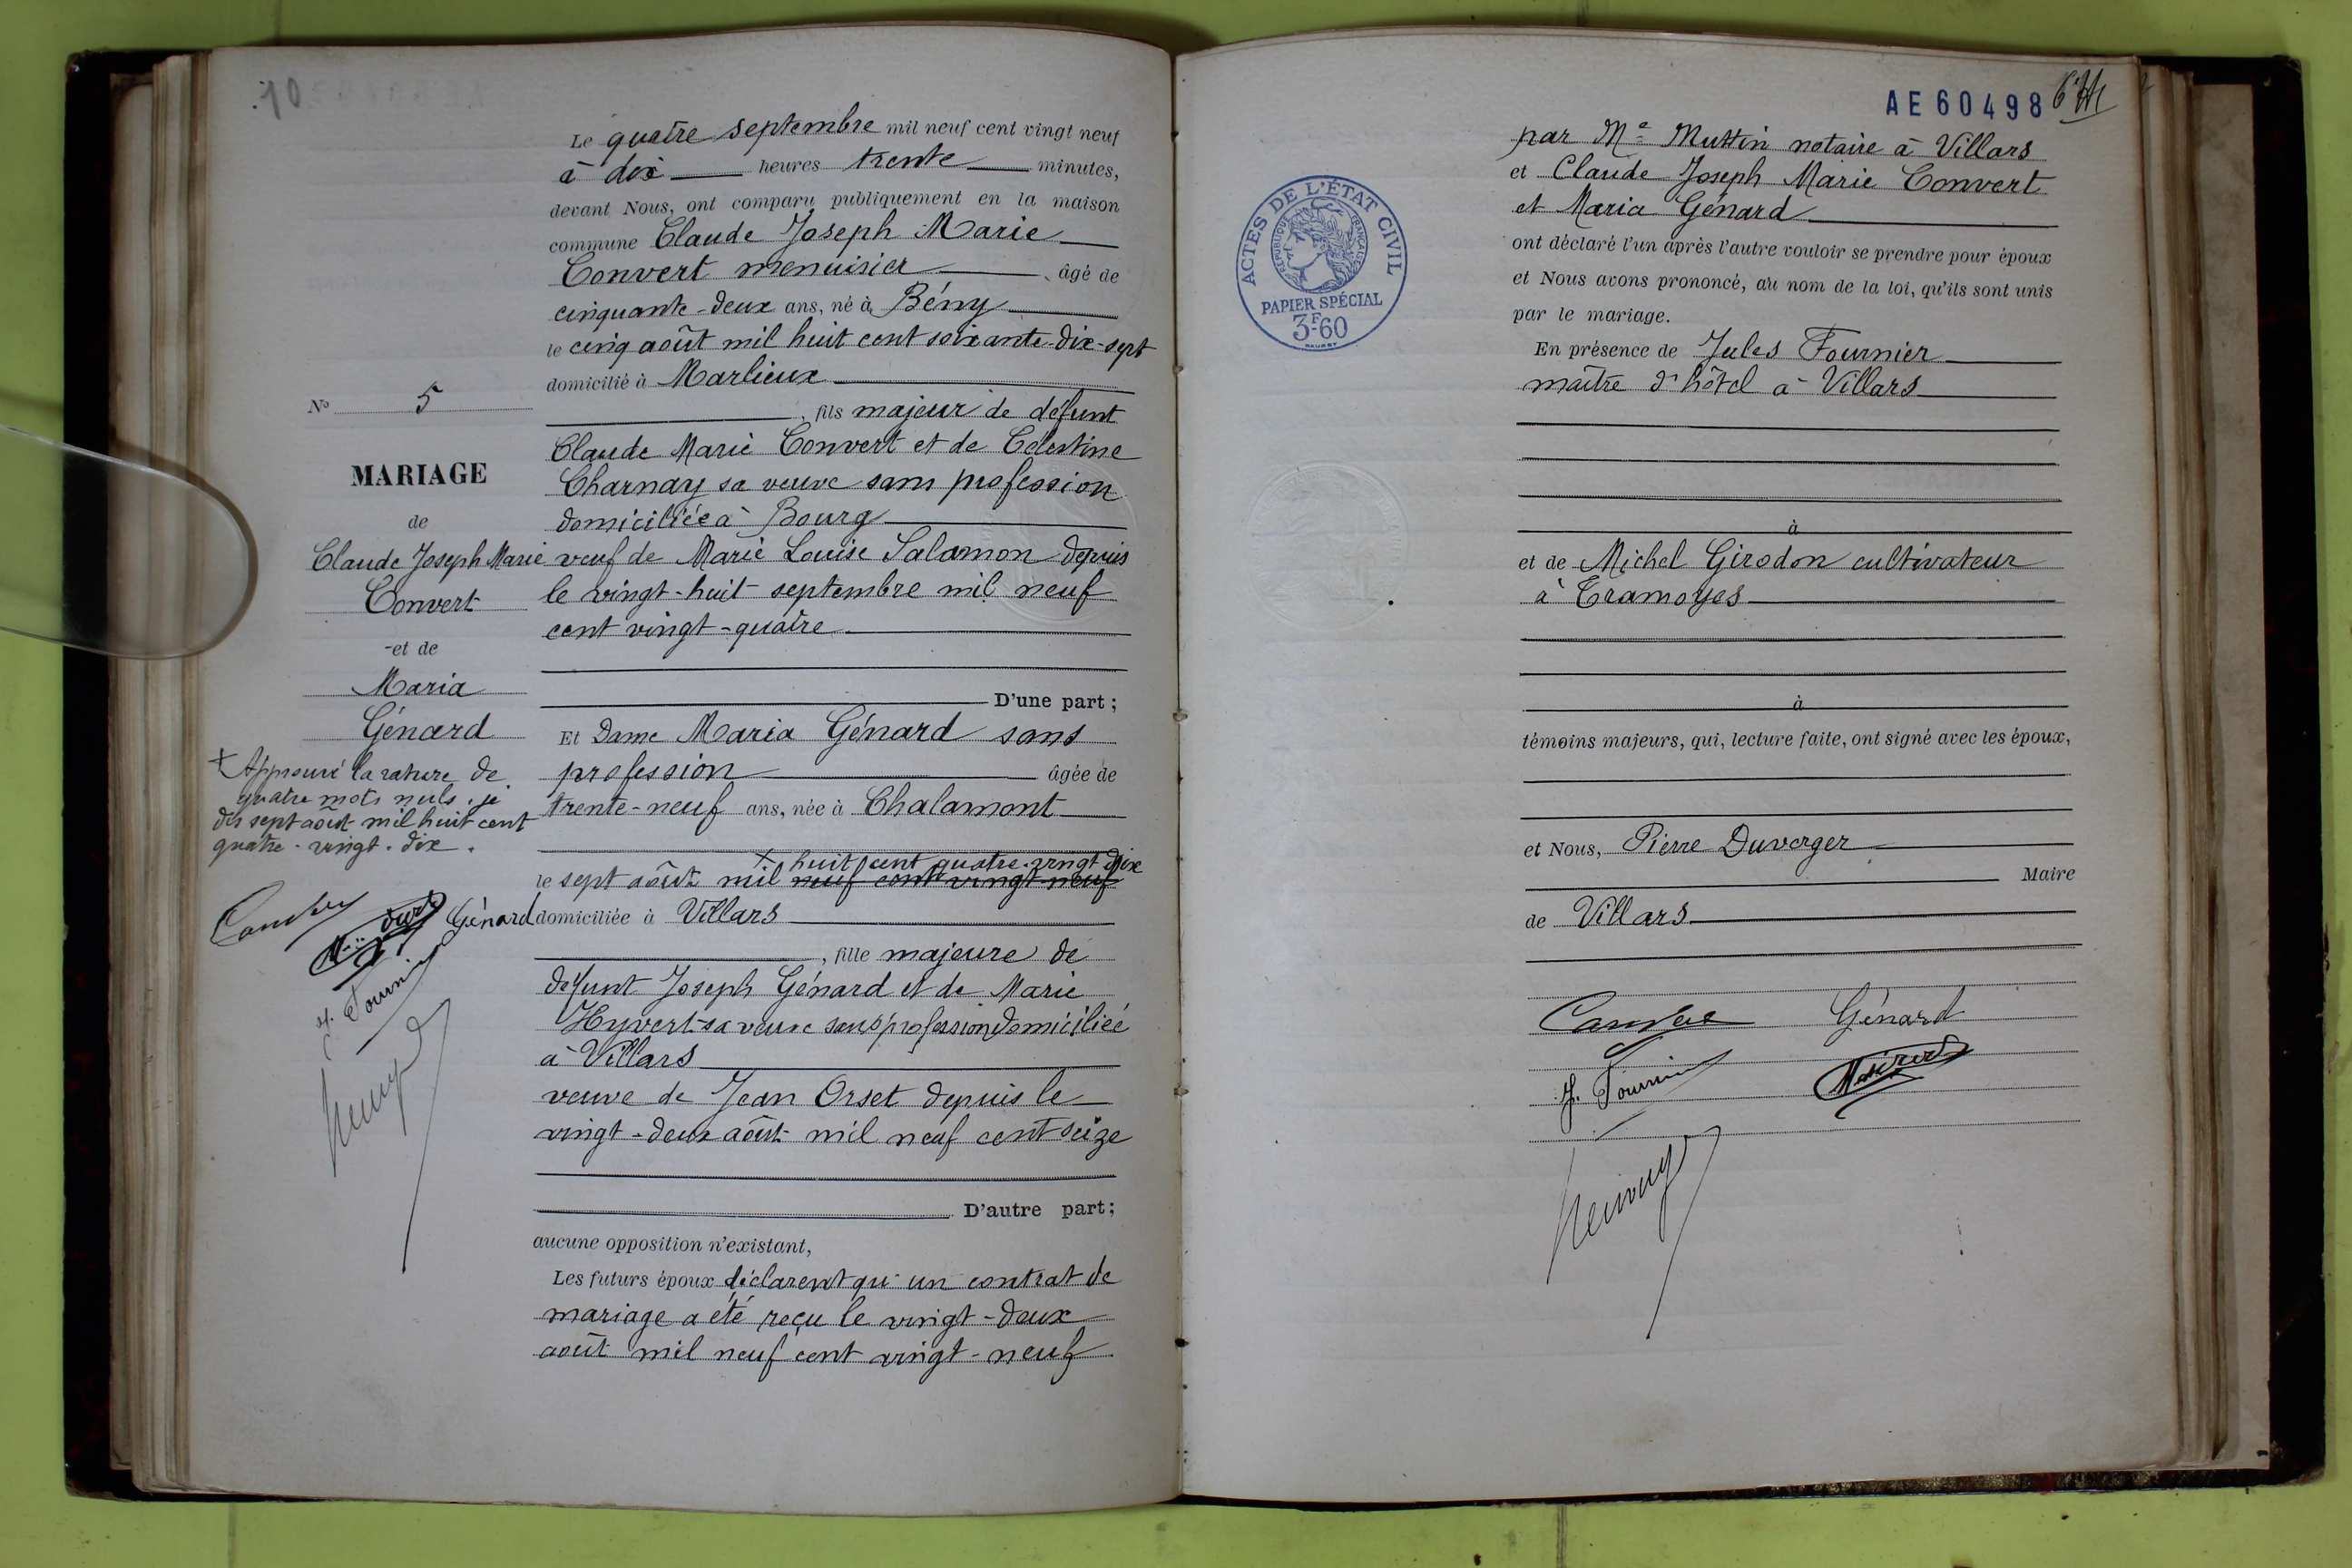 10
Le quatre septembre mil neuf cent vingt neuf
à dix heures trente minutes,
devant Nous, ont comparu publiquement en la maison
commune Claude Joseph Marie
Convert menuisier âgé de
cinquante-deux ans, né à Bény
le cinq août mil huit cent soixante-dix-sept
domicilié à Marlieux
, fils majeur de défunt
Claude Marie Convert et de Célestine
Charnay sa veuve sans profession
domiciliée à Bourg
veuf de Marie Louise Salamon depuis
le vingt-huit septembre mil neuf
cent vingt-quatre
D'une part ;
Et Dame Maria Génard sans
profession âgée de
trente-neuf ans, née à Chalamont
+ huit cent quatre-vingt-dix
le sept août mil neuf cent vingt-neuf
domiciliée à Villars
, fille majeure de
défunt Joseph Génard et de Marie
Hyvert sa veuve sans profession domiciliée
à Villars
veuve de Jean Orset depuis le
vingt-deux août mil neuf cent seize
D'autre part ;
aucune opposition n'existant,
Les futurs époux déclarent qu'un contrat de
mariage a été reçu le vingt-deux
août mil neuf cent vingt-neuf
No 5
MARIAGE
de
Claude Joseph Marie
Convert
-et de
Maria
Génard
+ Approuvé la rature de
quatre mots nuls. je
dis sept août mil huit cent
quatre-vingt-dix.
Génard
J. Fournier
AE 60498
par Me Muttin notaire à Villars
et Claude Joseph Marie Convert
et Maria Génard
ont déclaré l'un après l'autre vouloir se prendre pour époux
et Nous avons prononcé, au nom de la loi, qu'ils sont unis
par le mariage.
En présence de Jules Fournier
maître d'hôtel à Villars
à
et de Michel Girodon cultivateur
à Tramoyes
à
témoins majeurs, qui, lecture faite, ont signé avec les époux,
et Nous, Pierre Duverger
Maire
de Villars
Génard
J. Fournier
ACTES DE L'ÉTAT CIVIL
RÉPUBLIQUE FRANÇAISE
PAPIER SPÉCIAL
3F60